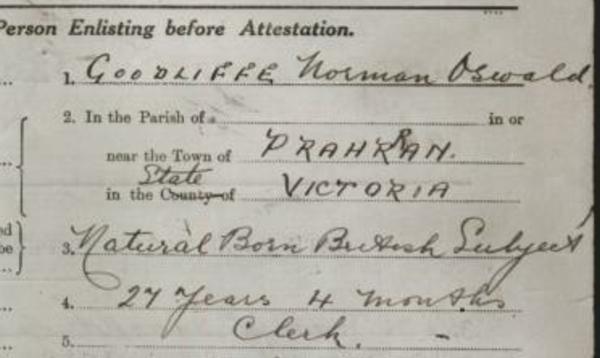 Person Enlisting before Attestation.
1. GOODLIFFE Norman Oswald.
2. In the Parish of in or
near the Town of PRAHRAN.
State
in the County of VICTORIA
3. Natural Born British Subject
4. 27 Years 4 months
5. Clerk. -